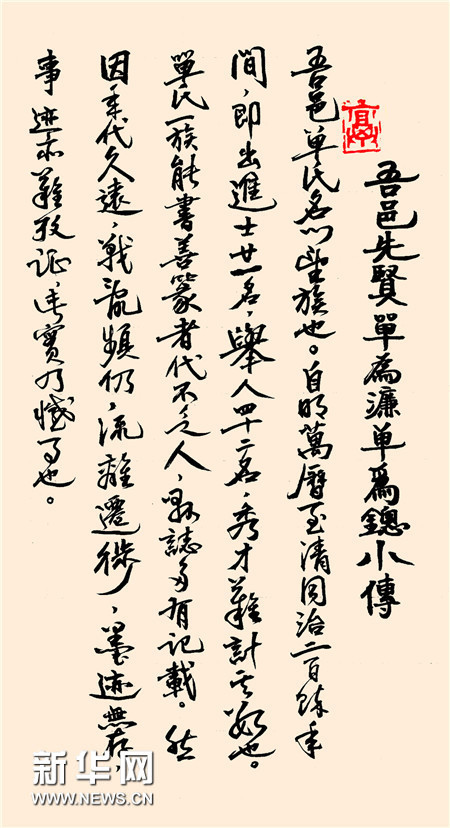 吾邑先賢單為濂单為鏓小傳
吾邑单氏名门望族也。自明萬曆至清同治二百餘年
间，即出進士廿一名，舉人四十二名，秀才難計其數也。
單氏一族能書善篆者代不乏人，縣誌多有記載。然
因年代久遠，戰亂频仍，流離遷徙，墨迹無存，
事迹亦難考证，此實乃憾事也。
新华网
WWW.NEWS.CN